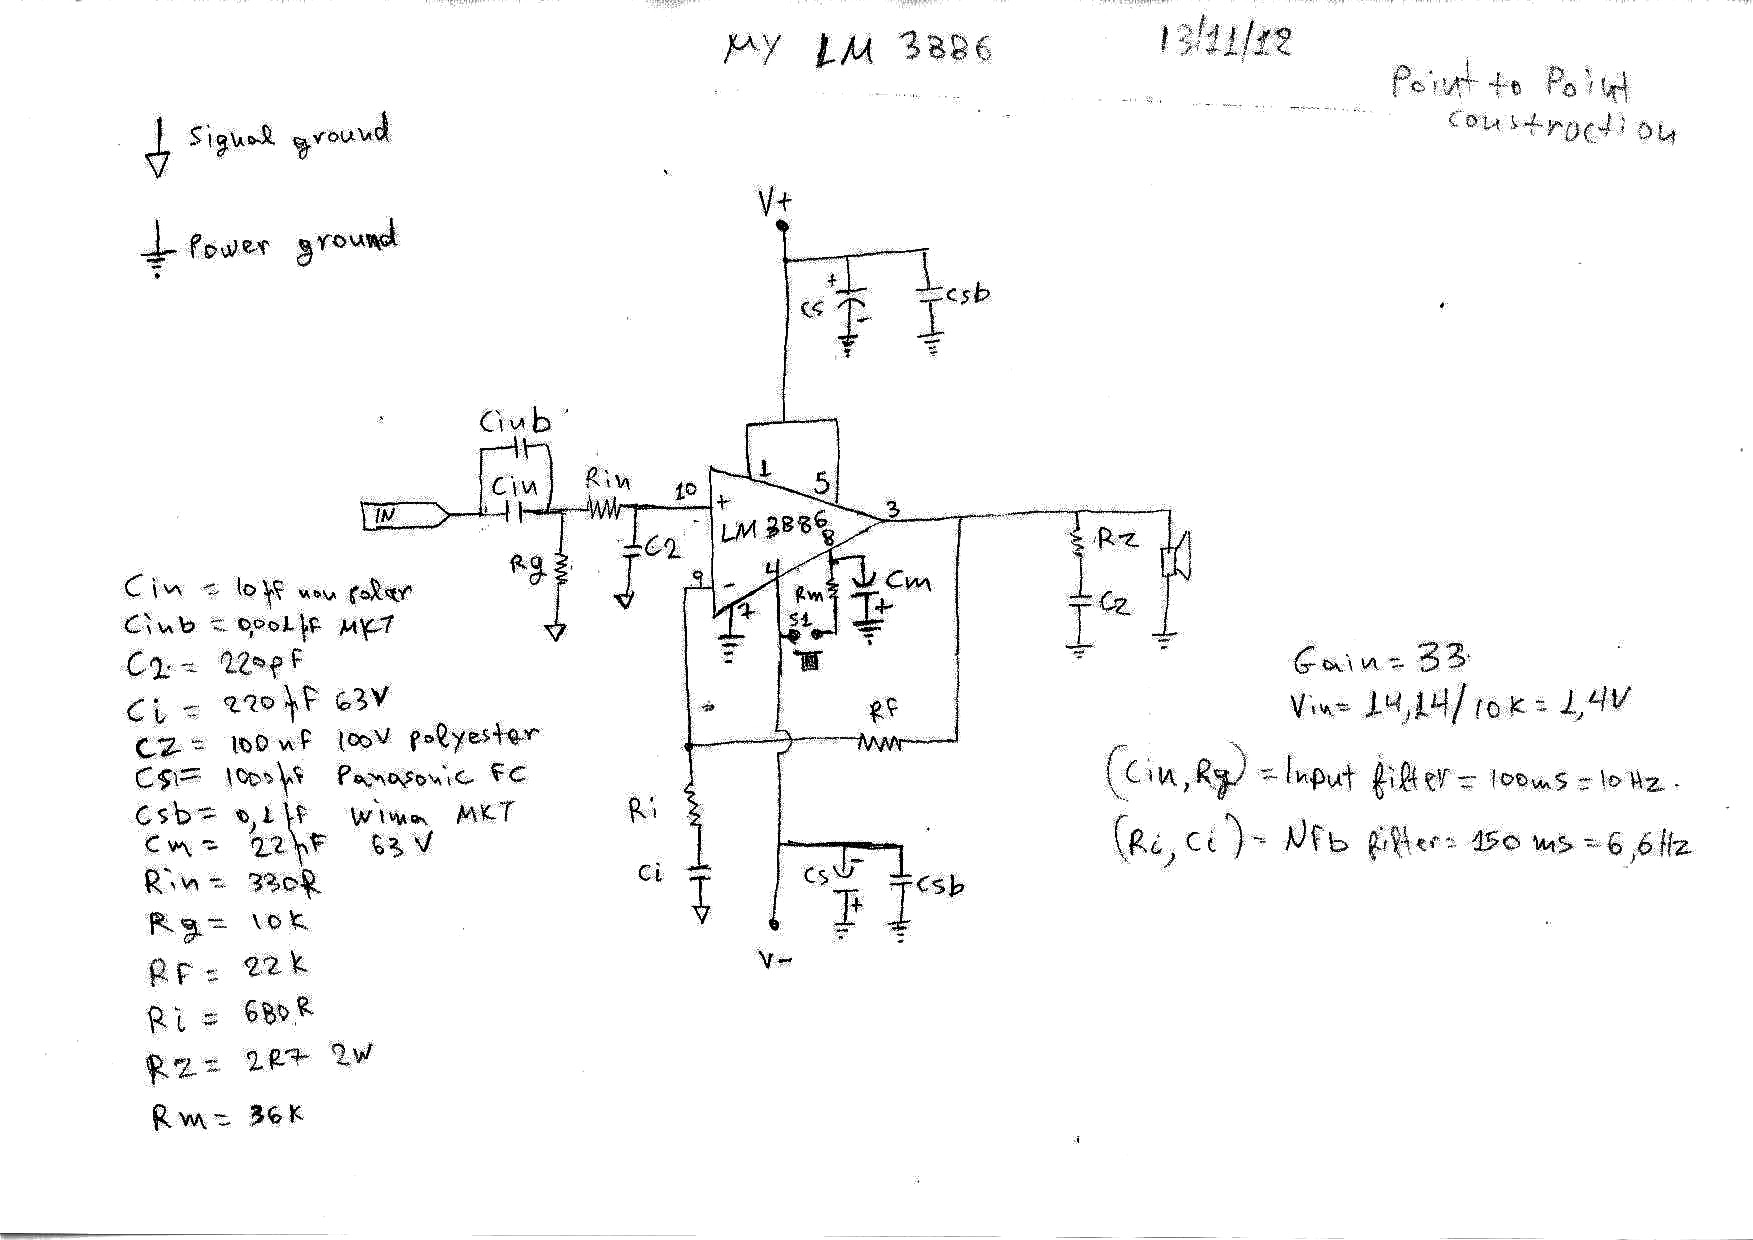 MY LM 3886
13/11/12
Point to Point
construction
Signal ground
Power ground
V+
+
Cs
-
Csb
Cinb
Cin
Rin
IN
10
+
1
5
3
LM 3886
8
C2
Rg
9
-
4
7
Rm
Cm
+
S1
Rz
Cz
Rf
Ri
Ci
Cs
-
+
Csb
V-
Cin = 10µF non polar
Cinb = 0,001µF MKT
C2 = 220pF
Ci = 220µF 63V
CZ = 100nF 100V polyester
CS1= 1000µF Panasonic FC
Csb= 0,1µF Wima MKT
Cm = 22µF 63V
Rin = 330R
Rg = 10K
RF = 22K
Ri = 680R
RZ = 2R7 2W
Rm = 36K
Gain = 33
Vin= 14,14/10K = 1,4V
(Cin,Rg) = Input filter = 100ms = 10Hz.
(Ri,Ci) = Nfb filter= 150 ms = 6,6Hz